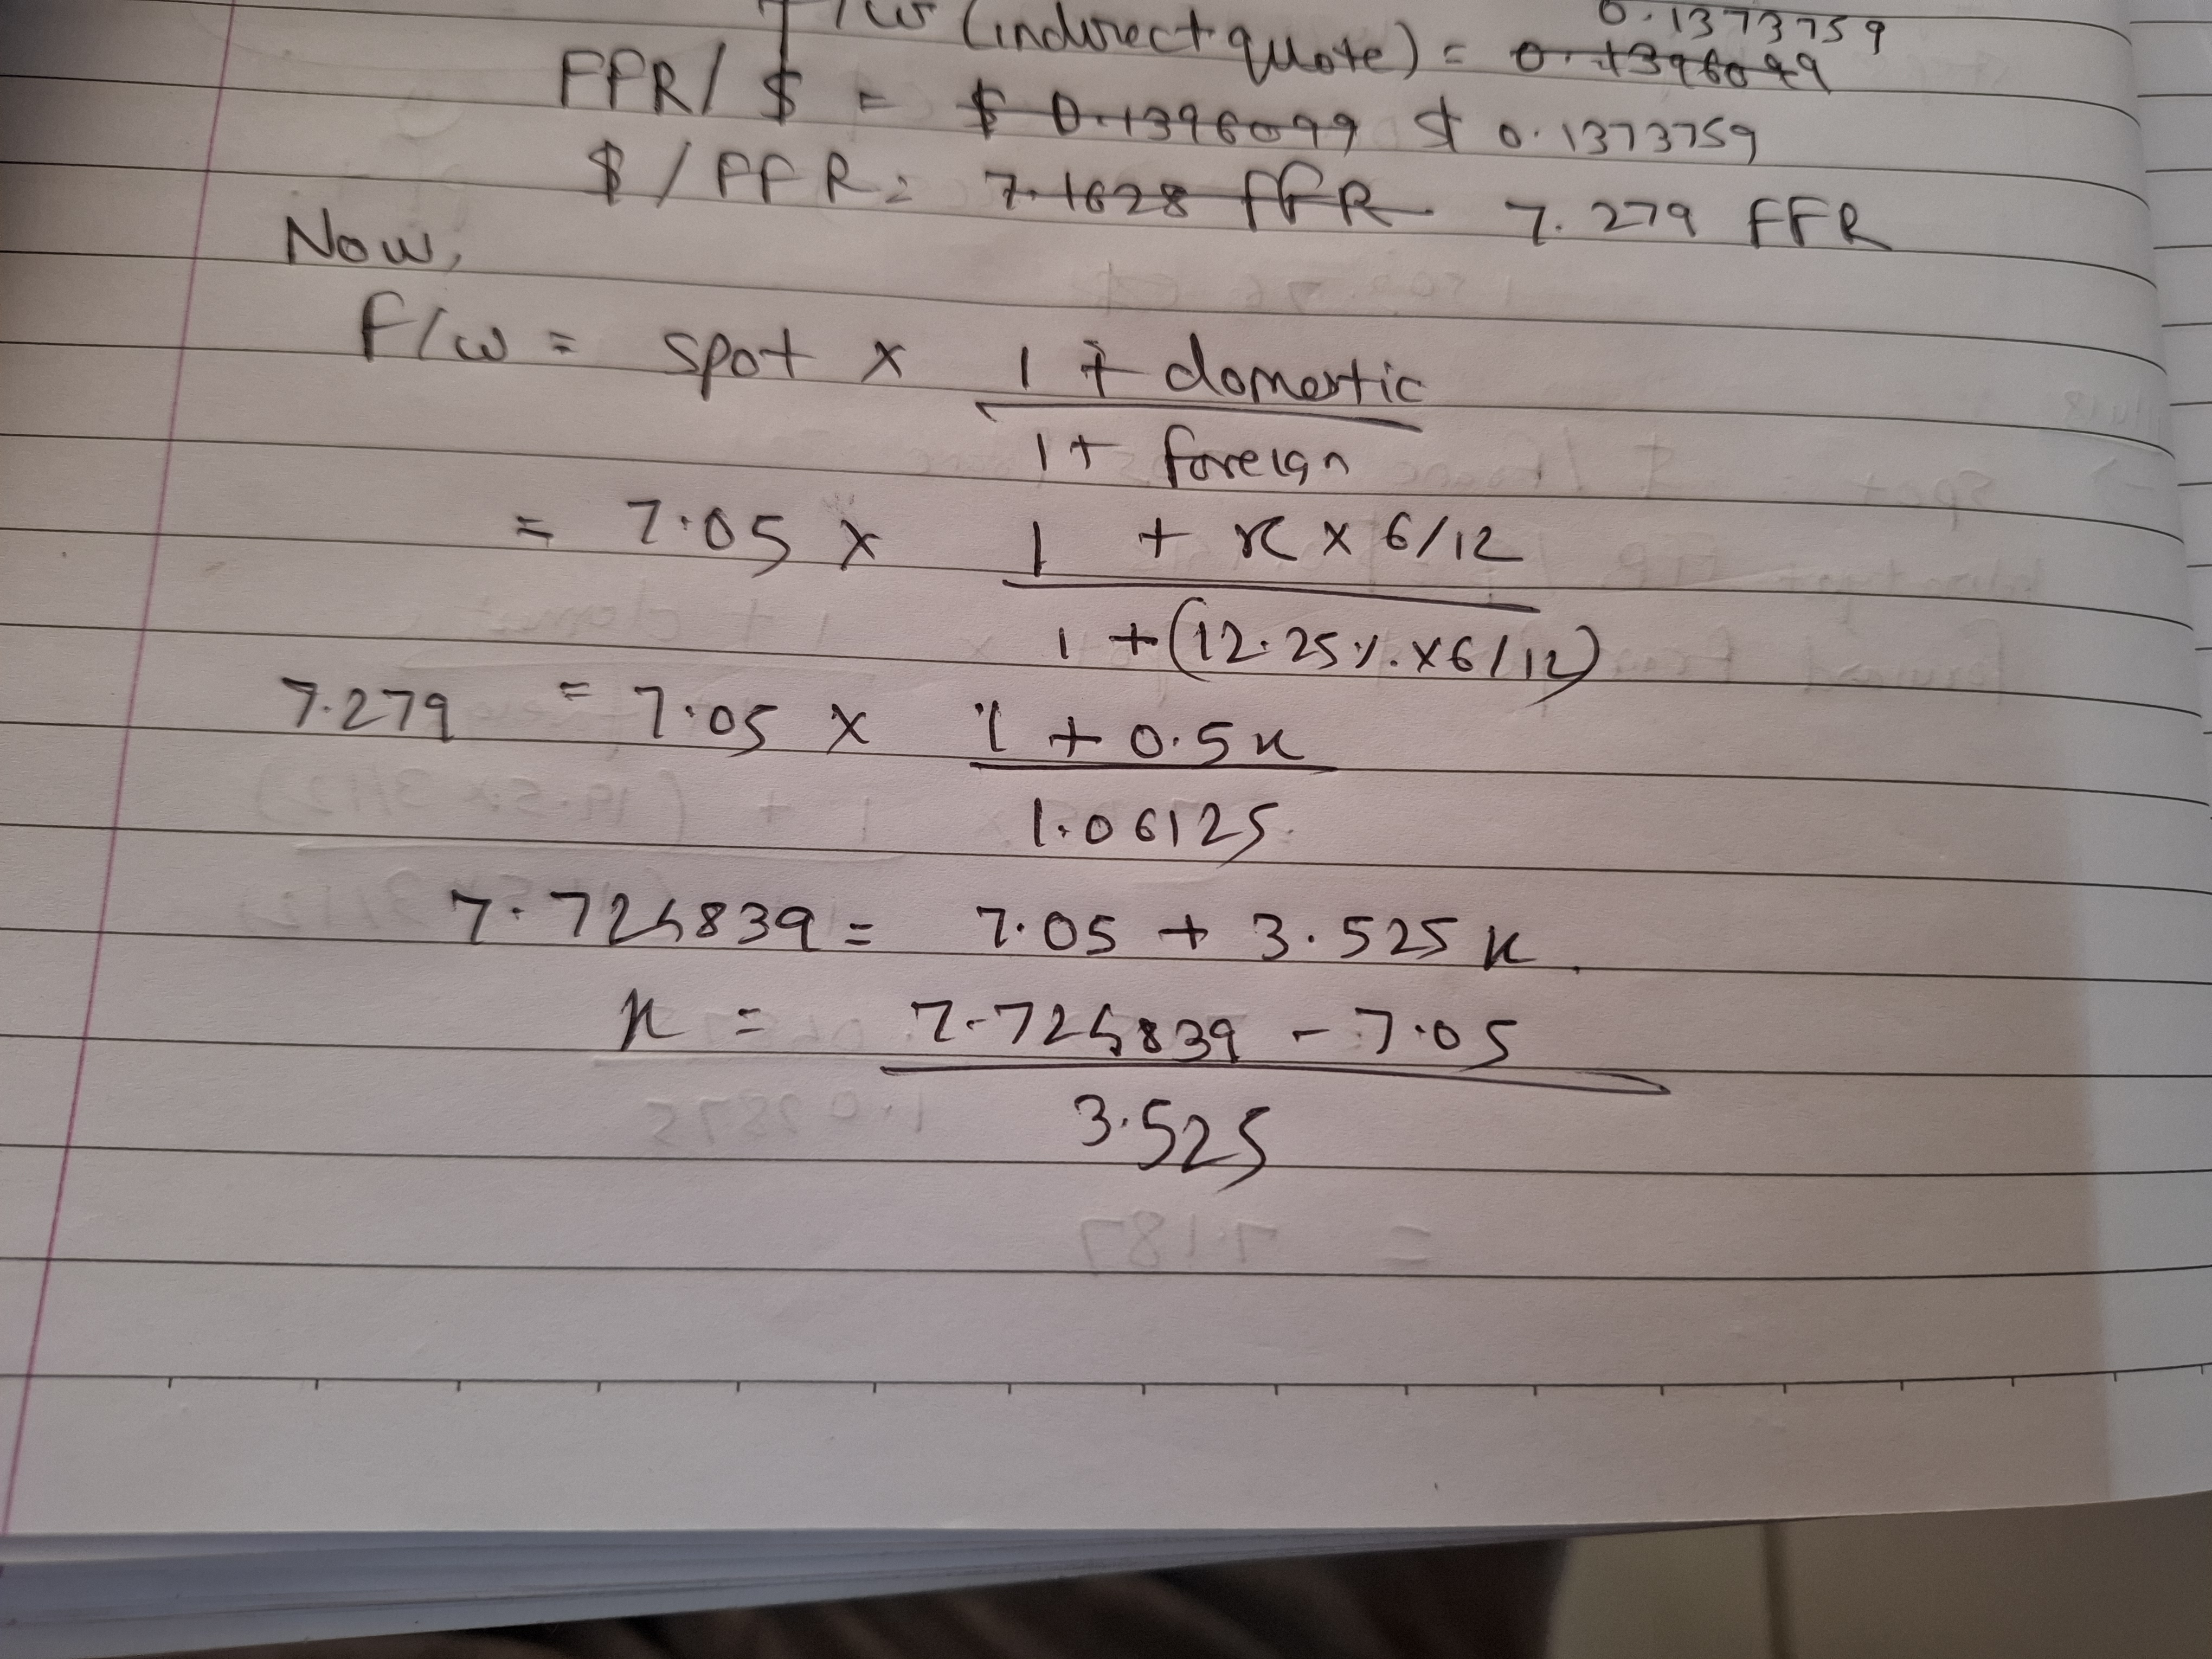 F/w (indirect quote) = 0.1396099 0.1373759
FFR / $ = $ 0.1396099 $ 0.1373759
$ / FFR = 7.1628 FFR 7.279 FFR
Now,
F/w = spot x 1 + domestic
1 + foreign
= 7.05 x 1 + x x 6/12
1 + (12.25%. x 6/12)
7.279 = 7.05 x 1 + 0.5x
1.06125
7.724839 = 7.05 + 3.525x.
x = 7.724839 - 7.05
3.525